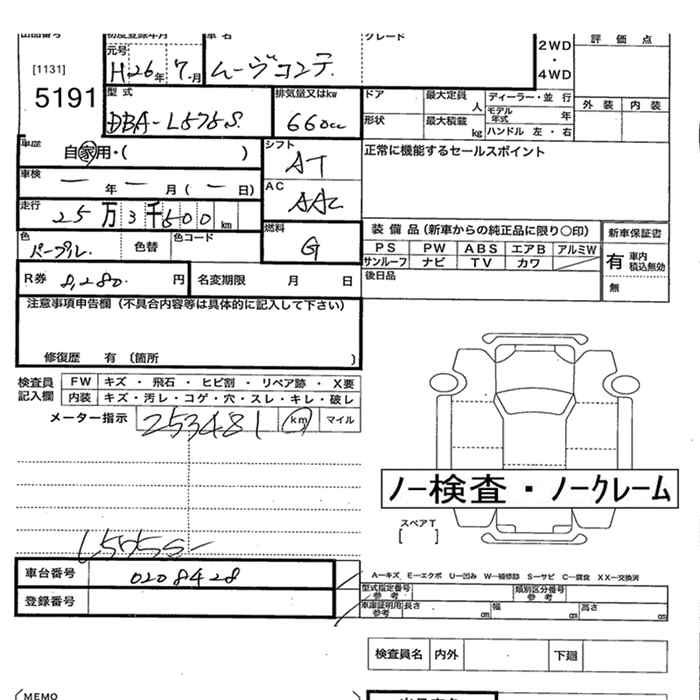 出品番号 初度登録年月 車名 グレード
元号
[1131] H26年 7.月 ムーヴコンテ
5191
2WD・4WD
評価点
外装 内装
型式 DBA-L575S.
排気量又はkw 660cc
ドア 最大定員 人 ディーラー・並行
モデル年式 年
形状 最大積載 kg ハンドル 左・右
車歴 自家用・( )
シフト AT
正常に機能するセールスポイント
車検 ー年ー月(ー日)
AC AAC
走行 25万3千500km
燃料 G
色 パープル. 色替 色コード
装備品(新車からの純正品に限り○印)
PS PW ABS エアB アルミW
サンルーフ ナビ TV カワ
新車保証書
有 車内積込無効
無
R券 8,280. 円 名変期限 月 日
後日品
注意事項申告欄(不具合内容等は具体的に記入して下さい)
修復歴 有〔箇所 〕
検査員記入欄 FW キズ・飛石・ヒビ割・リペア跡・X要
内装 キズ・汚レ・コゲ・穴・スレ・キレ・破レ
メーター指示 253481 km マイル
ノー検査・ノークレーム
スペアT
[ ]
L575S-
車台番号 0208428
登録番号
A-キズ E-エクボ U-凹み W-補修跡 S-サビ C-腐食 XX-交換済
型式指定番号参考 類別区分番号参考
車庫証明用参考 長さ cm 幅 cm 高さ cm
検査員名 内外 下廻
(MEMO